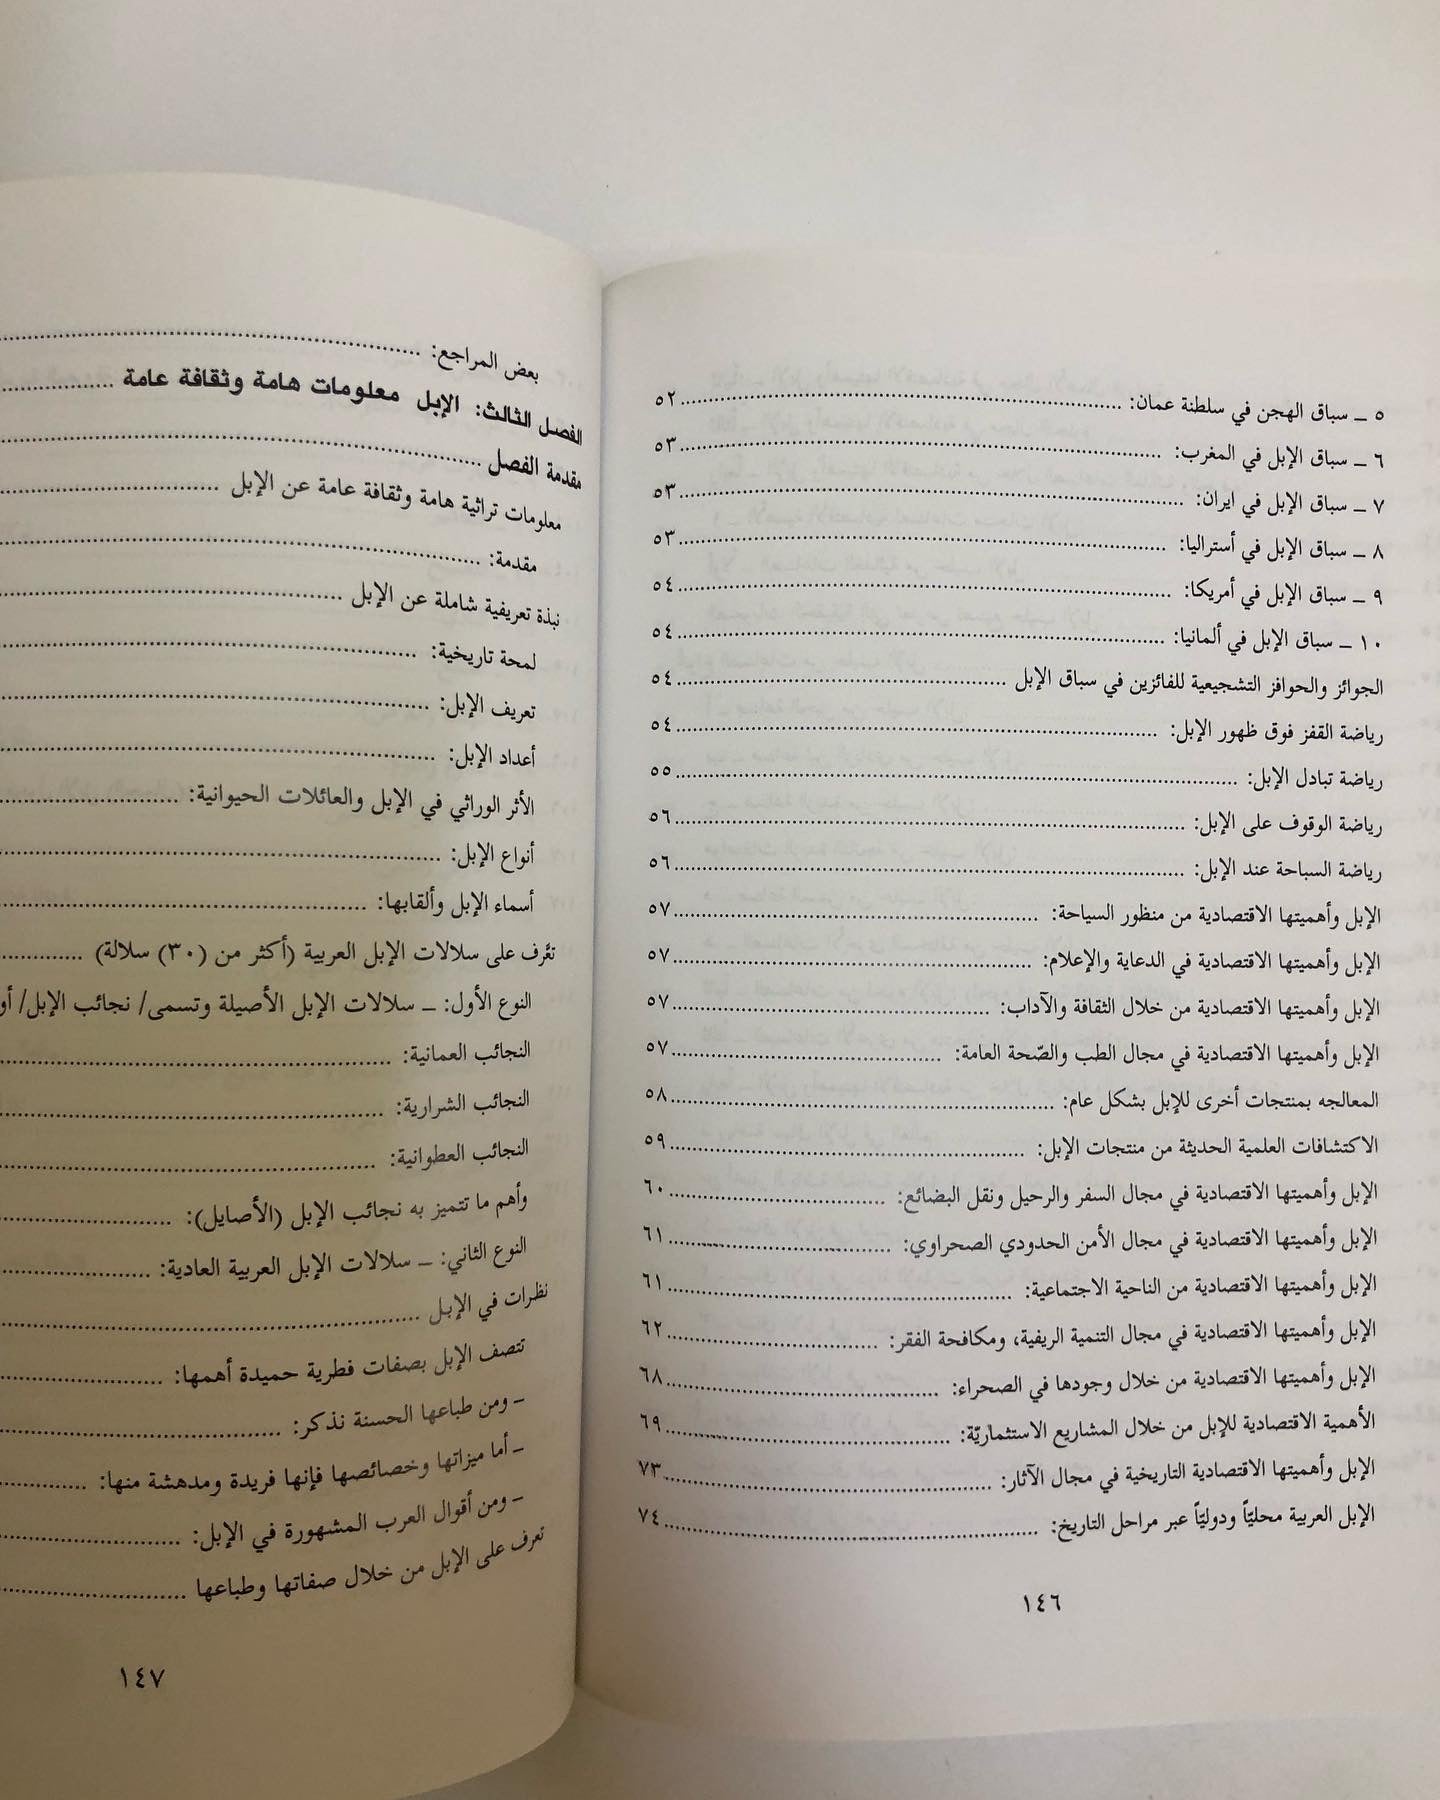 ٥ ــ سباق الهجن في سلطنة عمان: ........ ٥٢
٦ ــ سباق الإبل في المغرب: ........ ٥٣
٧ ــ سباق الإبل في ايران: ........ ٥٣
٨ ــ سباق الإبل في أستراليا: ........ ٥٣
٩ ــ سباق الإبل في أمريكا: ........ ٥٤
١٠ ــ سباق الإبل في ألمانيا: ........ ٥٤
الجوائز والحوافز التشجيعية للفائزين في سباق الإبل ........ ٥٤
رياضة القفز فوق ظهور الإبل: ........ ٥٤
رياضة تبادل الإبل: ........ ٥٥
رياضة الوقوف على الإبل: ........ ٥٦
رياضة السباحة عند الإبل: ........ ٥٦
الإبل وأهميتها الاقتصادية من منظور السياحة: ........ ٥٧
الإبل وأهميتها الاقتصادية في الدعاية والإعلام: ........ ٥٧
الإبل وأهميتها الاقتصادية من خلال الثقافة والآداب: ........ ٥٧
الإبل وأهميتها الاقتصادية في مجال الطب والصّحة العامة: ........ ٥٧
المعالجه بمنتجات أخرى للإبل بشكل عام: ........ ٥٨
الاكتشافات العلمية الحديثة من منتجات الإبل: ........ ٥٩
الإبل وأهميتها الاقتصادية في مجال السفر والرحيل ونقل البضائع: ........ ٦٠
الإبل وأهميتها الاقتصادية في مجال الأمن الحدودي الصحراوي: ........ ٦١
الإبل وأهميتها الاقتصادية من الناحية الاجتماعية: ........ ٦١
الإبل وأهميتها الاقتصادية في مجال التنمية الريفية، ومكافحة الفقر: ........ ٦٢
الإبل وأهميتها الاقتصادية من خلال وجودها في الصحراء: ........ ٦٨
الأهمية الاقتصادية للإبل من خلال المشاريع الاستثماريّة: ........ ٦٩
الإبل وأهميتها الاقتصادية التاريخية في مجال الآثار: ........ ٧٣
الإبل العربية محليّاً ودوليّاً عبر مراحل التاريخ: ........ ٧٤
١٤٦
بعض المراجع: ........
الفصل الثالث: الإبل معلومات هامة وثقافة عامة ........
مقدمة الفصل ........
معلومات تراثية هامة وثقافة عامة عن الإبل ........
مقدمة: ........
نبذة تعريفية شاملة عن الإبل ........
لمحة تاريخية: ........
تعريف الإبل: ........
أعداد الإبل: ........
الأثر الوراثي في الإبل والعائلات الحيوانية: ........
أنواع الإبل: ........
أسماء الإبل وألقابها: ........
تعَّرف على سلالات الإبل العربية (أكثر من (٣٠) سلالة) ........
النوع الأول: ــ سلالات الإبل الأصيلة وتسمى/ نجائب الإبل/ أو
النجائب العمانية: ........
النجائب الشرارية: ........
النجائب العطوانية: ........
وأهم ما تتميز به نجائب الإبل (الأصايل): ........
النوع الثاني: ــ سلالات الإبل العربية العادية: ........
نظرات في الإبل ........
تتصف الإبل بصفات فطرية حميدة أهمها: ........
– ومن طباعها الحسنة نذكر: ........
– أما ميزاتها وخصائصها فإنها فريدة ومدهشة منها: ........
– ومن أقوال العرب المشهورة في الإبل: ........
تعرف على الإبل من خلال صفاتها وطباعها ........
١٤٧